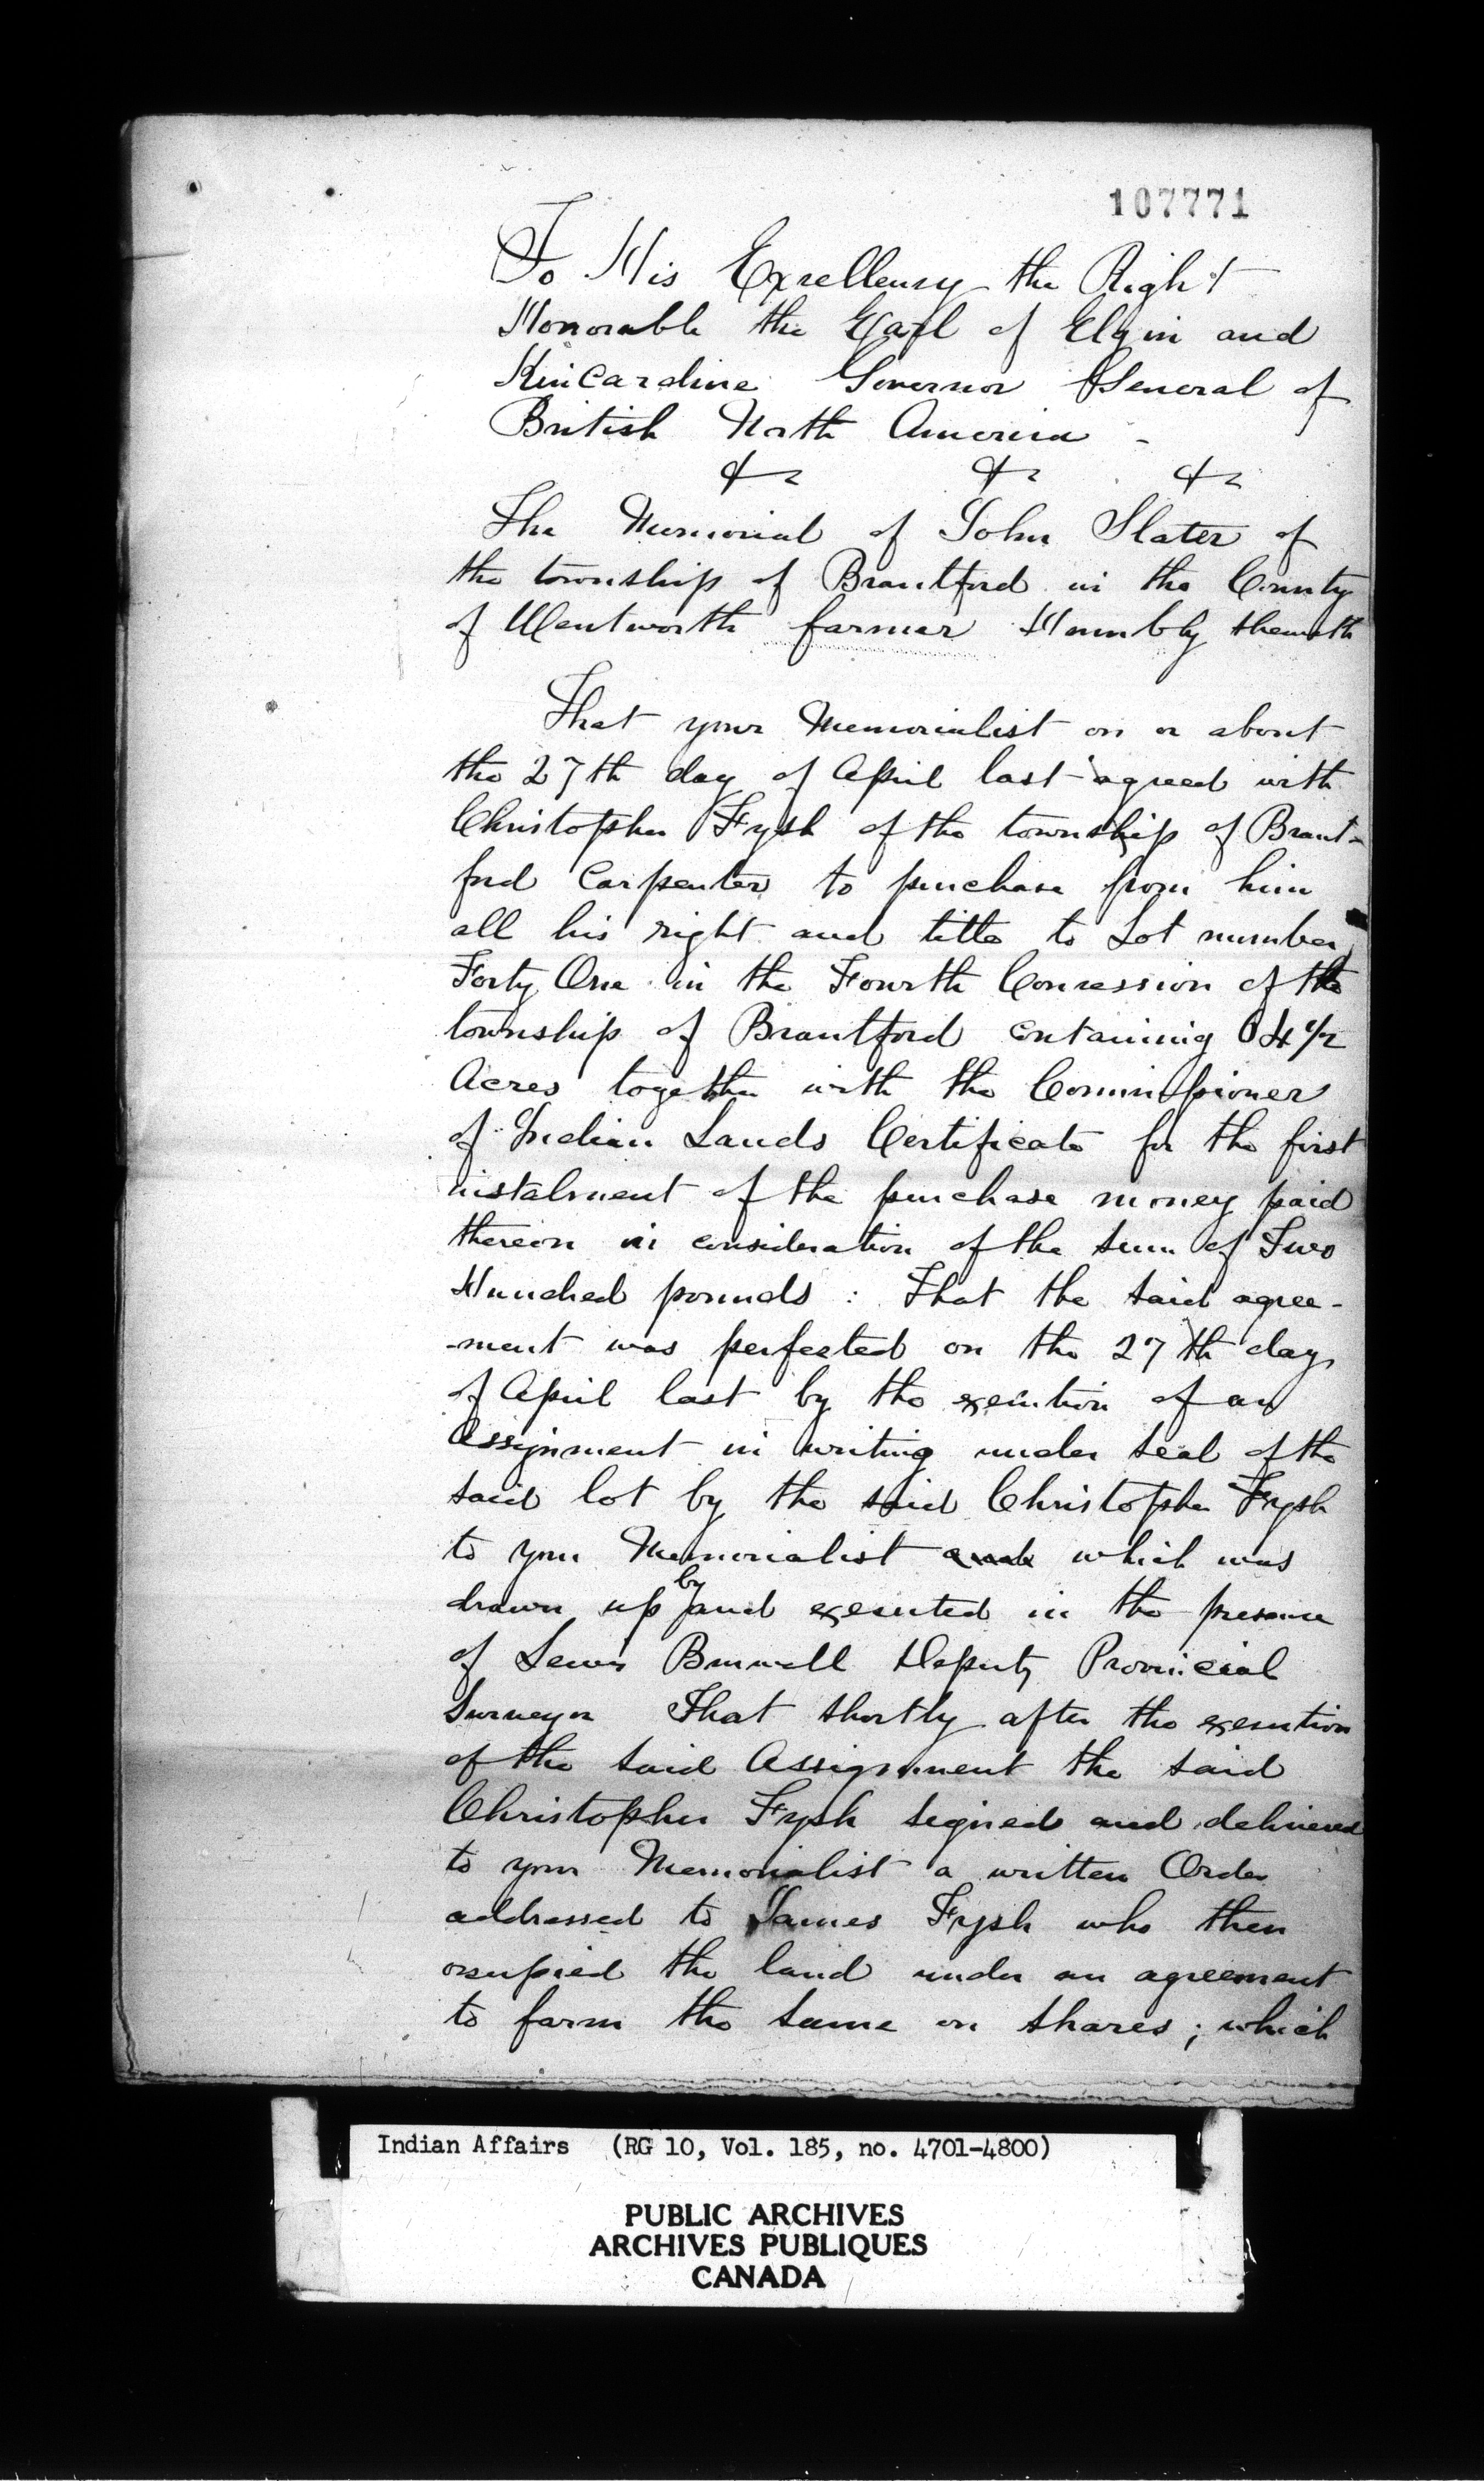 107771
To His Excellency the Right
Honorable the Earl of Elgin and
Kincardine Governor General of
British North America -
&c &c &c
The Memorial of John Slater of
the township of Brantford in the County
of Wentworth farmer Humbly sheweth
That your Memorialist on or about
the 27th day of April last agreed with
Christopher Fysh of the township of Brant-
ford Carpenter to purchase from him
all his right and title to Lot number
Forty One in the Fourth Concession of the
township of Brantford containing
Acres together with the Commissioner
of Indian Lands Certificate for the first
instalment of the purchase money paid
thereon in consideration of the sum of Two
Hundred pounds : That the said agree-
-ment was perfected on the 27th day
of April last by the execution of an
Assignment in writing under seal of the
said lot by the said Christopher Fysh
to your Memorialist and which was
drawn up by and executed in the presence
of Lewis Burwell Deputy Provincial
Surveyor That shortly after the execution
of the said Assignment the said
Christopher Fysh signed and delivered
to your Memorialist a written Order
addressed to James Fysh who then
occupied the land under an agreement
to farm the same on shares ; which
Indian Affairs (RG 10, Vol. 185, no. 4701-4800)
PUBLIC ARCHIVES
ARCHIVES PUBLIQUES
CANADA